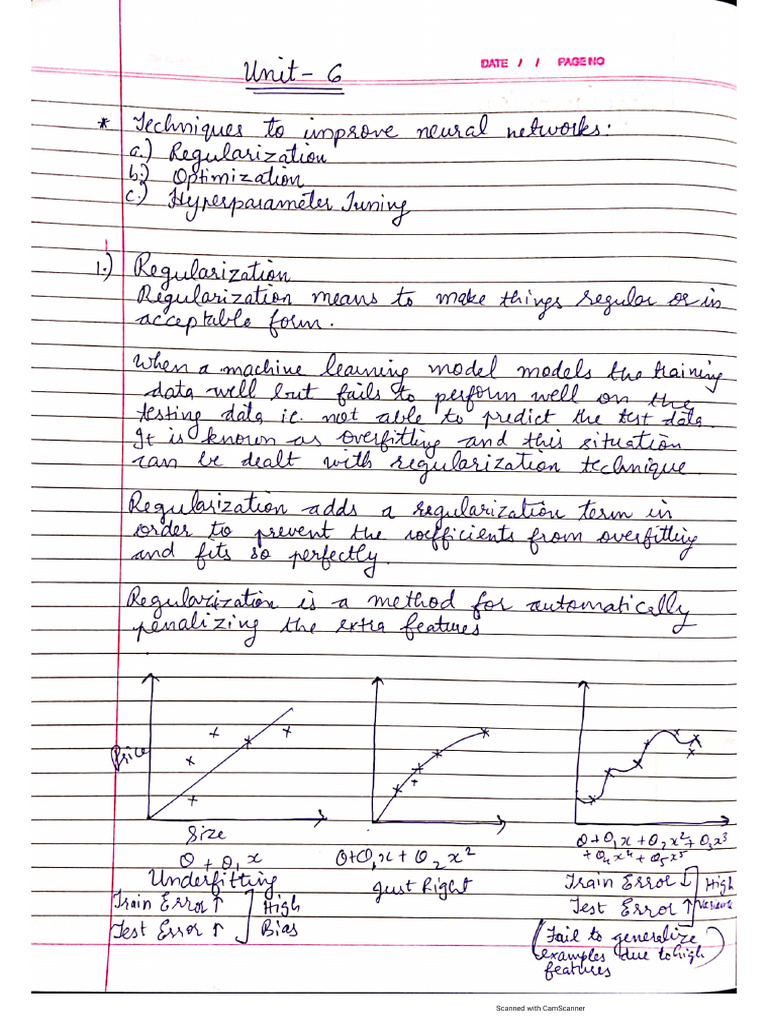 Unit - 6
DATE / / PAGE NO
* Techniques to improve neural networks:
a.) Regularization
b.) Optimization
c.) Hyperparameter Tuning
1.) Regularization
Regularization means to make things regular or in
acceptable form.
When a machine learning model models the training
data well but fails to perform well on the
testing data ie. not able to predict the test data.
It is known as overfitting and this situation
can be dealt with regularization technique.
Regularization adds a regularization term in
order to prevent the coefficients from overfitting
and fits so perfectly.
Regularization is a method for automatically
penalizing the extra features
Price
Size
θ + θ₁x
Underfitting
Train Error ↑
Test Error ↑
High
Bias
θ+θ₁x + θ₂x²
Just Right
θ+θ₁x + θ₂x² + θ₃x³
+ θ₄x⁴ + θ₅x⁵
Train Error ↓
Test Error ↑
High
Variance
(Fail to generalize
examples due to high
features)
Scanned with CamScanner